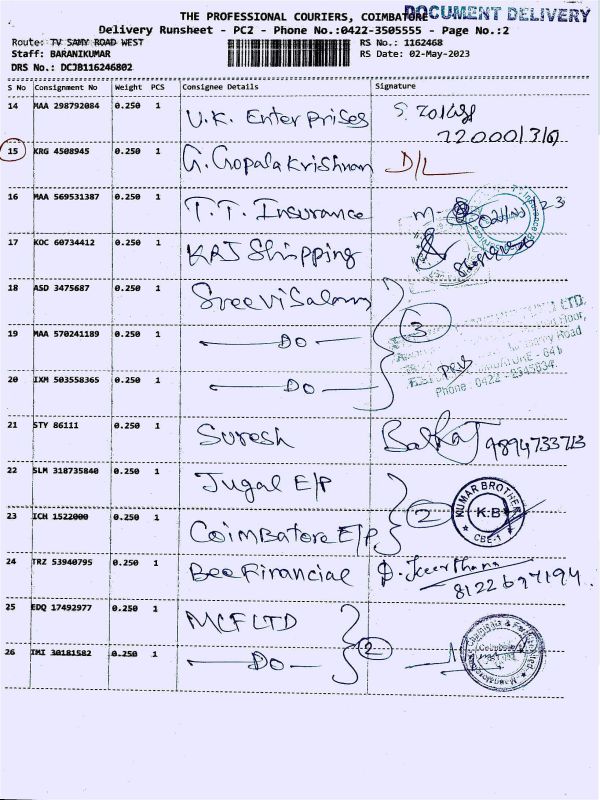 DOCUMENT DELIVERY
THE PROFESSIONAL COURIERS, COIMBATORE
Delivery Runsheet - PC2 - Phone No.:0422-3505555 - Page No.:2
Route: TV SAMY ROAD WEST RS No.: 1162468
Staff: BARANIKUMAR RS Date: 02-May-2023
DRS No.: DCJB116246802
S No Consignment No Weight PCS Consignee Details Signature
14 MAA 298792084 0.250 1 U.K. Enterprises
15 KRG 4508945 0.250 1 G. Gopalakrishnan D/L
16 MAA 569531387 0.250 1 T.T. Insurance
17 KOC 60734412 0.250 1 KRJ Shipping
18 ASD 3475687 0.250 1 SreeviSalam 3
19 MAA 570241189 0.250 1 DO
20 IXM 503558365 0.250 1 DO
Phone: 0422 - 2345834
21 STY 86111 0.250 1 Suresh 9894733713
22 SLM 318735840 0.250 1 Jugal E/P 2 KUMAR BROTHER K.B CBE-1
23 ICH 1522000 0.250 1 Coimbatore E/P
24 TRZ 53940795 0.250 1 Bee Financial P. Keerthana
8122697194.
25 EDQ 17492977 0.250 1 MCF LTD 2
26 IMI 30181582 0.250 1 DO